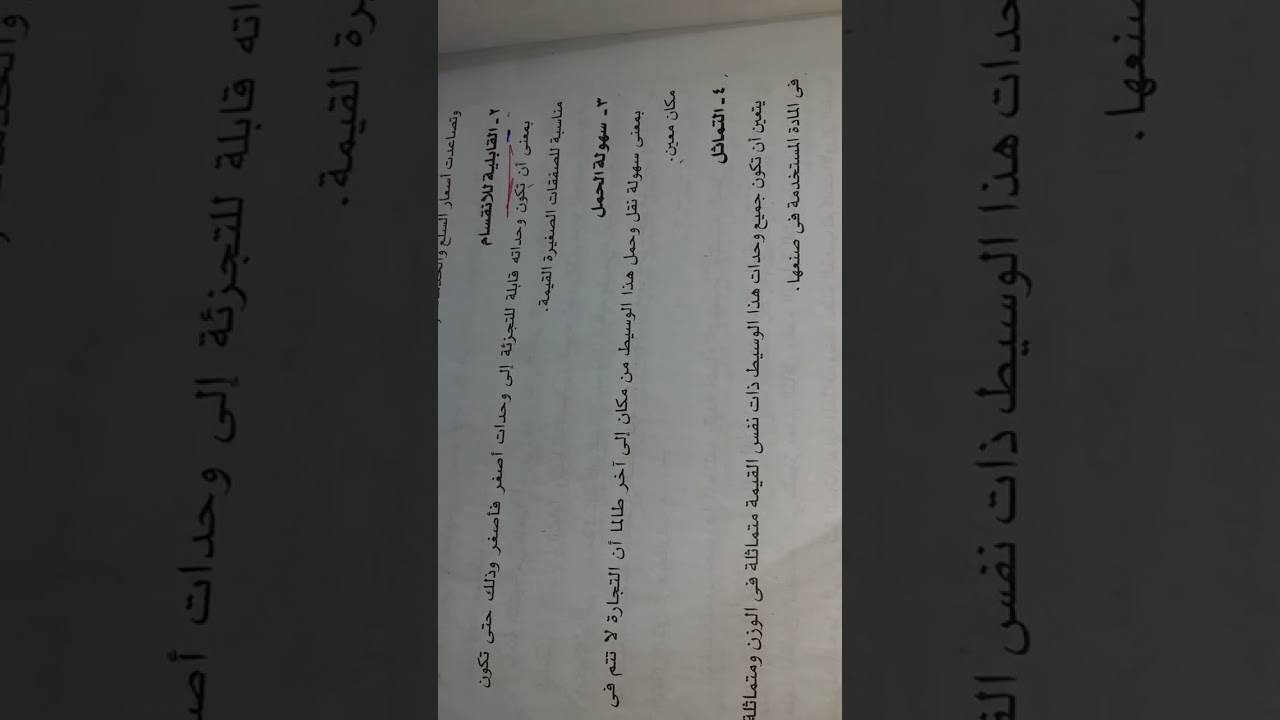 وتصاعدت أسعار السلع
٢ - القابلية للانقسام
بمعنى أن تكون وحداته قابلة للتجزئة إلى وحدات أصغر فأصغر وذلك حتى تكون
مناسبة للصفقات الصغيرة القيمة.
٣ - سهولة الحمل
بمعنى سهولة نقل وحمل هذا الوسيط من مكان إلى آخر طالما أن التجارة لا تتم فى
مكان معين.
٤ - التماثل
يتعين أن تكون جميع وحدات هذا الوسيط ذات نفس القيمة متماثلة فى الوزن ومتماثلة
فى المادة المستخدمة فى صنعها.